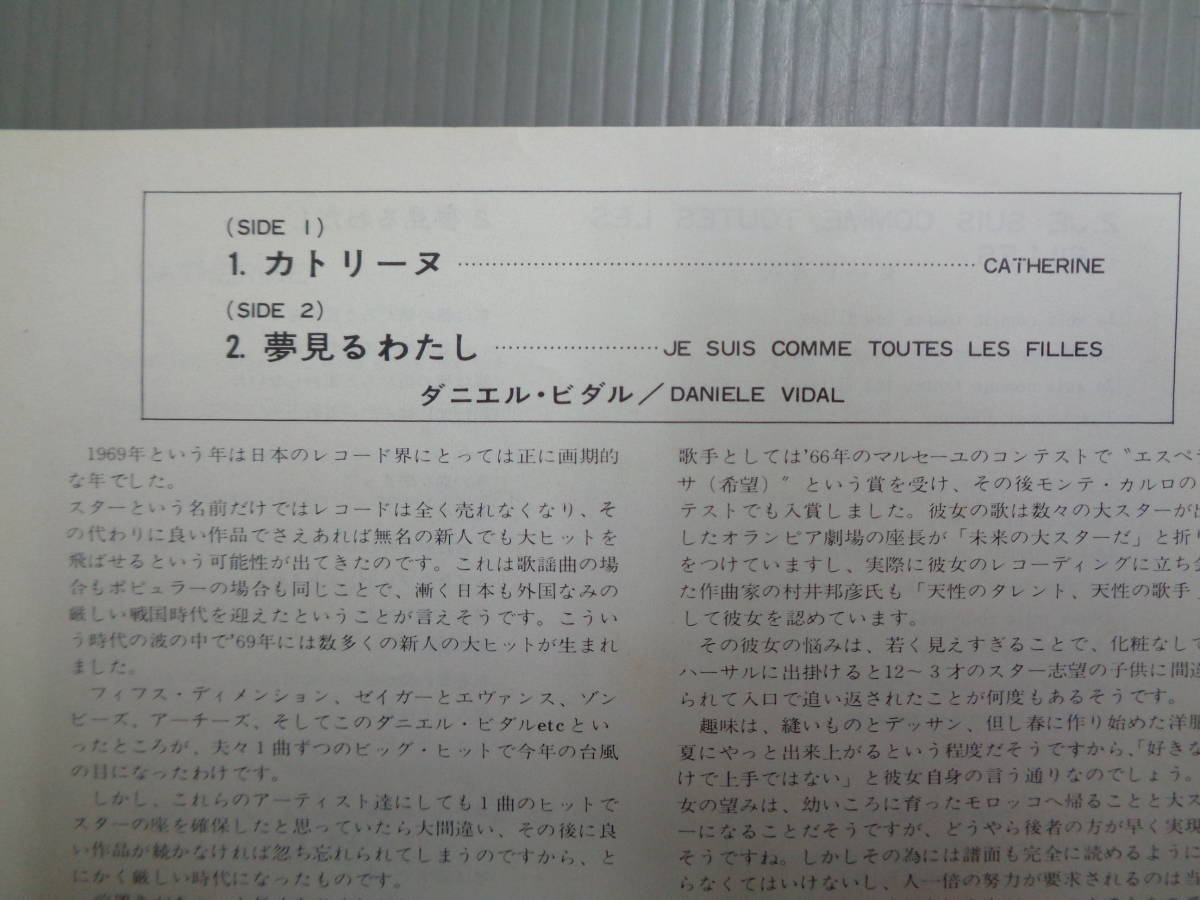 (SIDE 1)
1. カトリーヌ……CATHERINE
(SIDE 2)
2. 夢見るわたし……JE SUIS COMME TOUTES LES FILLES
ダニエル・ビダル／DANIELE VIDAL
1969年という年は日本のレコード界にとっては正に画期的
な年でした。
スターという名前だけではレコードは全く売れなくなり、そ
の代わりに良い作品でさえあれば無名の新人でも大ヒットを
飛ばせるという可能性が出てきたのです。これは歌謡曲の場
合もポピュラーの場合も同じことで、漸く日本も外国なみの
厳しい戦国時代を迎えたということが言えそうです。こうい
う時代の波の中で'69年には数多くの新人の大ヒットが生まれ
ました。
フィフス・ディメンション、ゼイガーとエヴァンス、ゾン
ビーズ、アーチーズ、そしてこのダニエル・ビダルetcとい
ったところが、夫々1曲ずつのビッグ・ヒットで今年の台風
の目になったわけです。
しかし、これらのアーティスト達にしても1曲のヒットで
スターの座を確保したと思っていたら大間違い、その後に良
い作品が続かなければ忽ち忘れられてしまうのですから、と
にかく厳しい時代になったものです。
歌手としては'66年のマルセーユのコンテストで〝エスペラ
サ（希望）〟という賞を受け、その後モンテ・カルロの
テストでも入賞しました。彼女の歌は数々の大スターが出
したオランピア劇場の座長が「未来の大スターだ」と折り
をつけていますし、実際に彼女のレコーディングに立ち会
た作曲家の村井邦彦氏も「天性のタレント、天性の歌手」
して彼女を認めています。
その彼女の悩みは、若く見えすぎることで、化粧なしで
ハーサルに出掛けると12～3才のスター志望の子供に間違
られて入口で追い返されたことが何度もあるそうです。
趣味は、縫いものとデッサン、但し春に作り始めた洋服
夏にやっと出来上がるという程度だそうですから、「好きな
けで上手ではない」と彼女自身の言う通りなのでしょう。
女の望みは、幼いころに育ったモロッコへ帰ることと大ス
ーになることだそうですが、どうやら後者の方が早く実現
そうですね。しかしその為には譜面も完全に読めるように
らなくてはいけないし、人一倍の努力が要求されるのは当